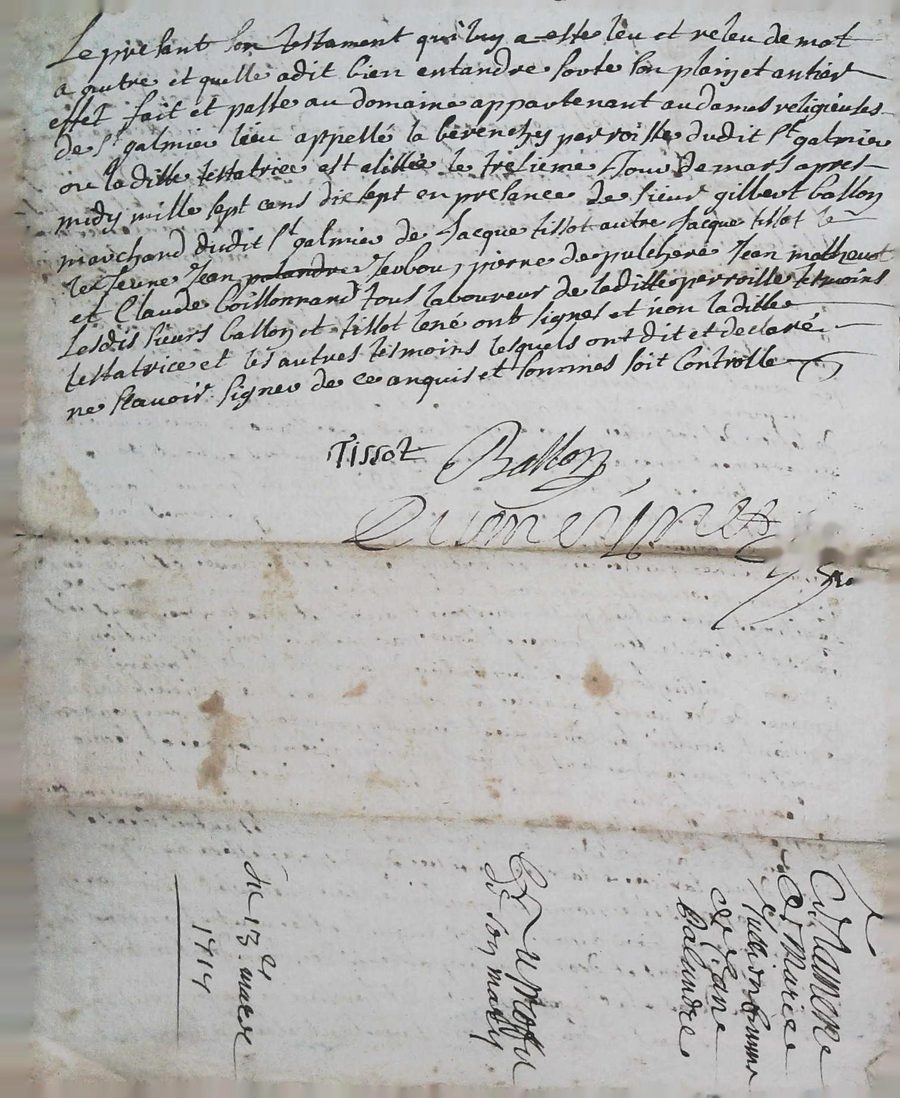 Le presant son testament qui luy a este leu et releu de mot
a autre et quelle a dit bien entandre sorte son plain et antier
effet fait et passe au domaine appartenant au dames religieuses
de St galmier lieu appellé la berenchy perroisse dudit St galmier
ou laditte testatrice est alittée le tresieme Jour de mars apres
midy mille sept cens dix sept en presance de sieur gilbert ballon
marchand dudit St galmier de Jacque tissot autre Jacque tissot le
le Jeune Jean palandre Jerbou, pierre de pulchere Jean matheust
et Claude Coillonnard tous laboureur de laditte perroisse tesmoins
Lesdis sieurs ballon et tissot lené ont signes et non laditte
testatrice et les autres tesmoins lesquels ont dit et declaré
ne scavoir signer de ce anquis et sommes soit Controlle
Tissot Ballon
Testament
de Marie
femme
de Jean
Palandre
de son mary
Du 13e mars
1717